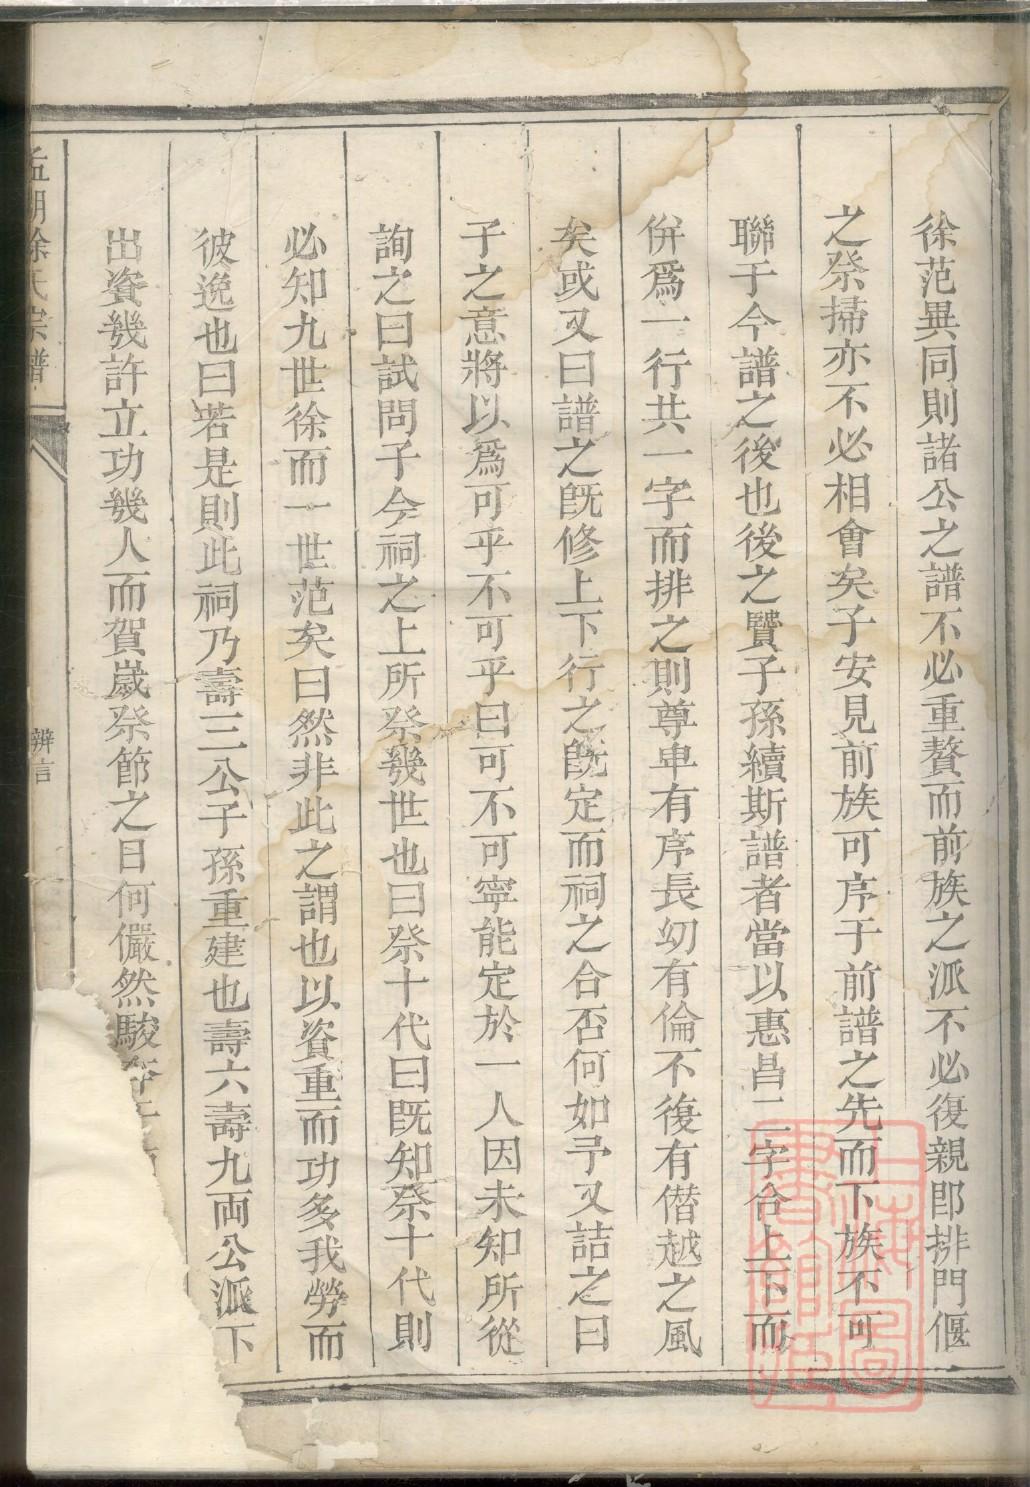 徐范異同則諸公之譜不必重贅而前族之派不必復親卽排門偃
之祭掃亦不必相會矣子安見前族可序于前譜之先而下族不可
聯于今譜之後也後之賢子孫續斯譜者當以惠昌二字合上下而
併爲一行共一字而排之則尊卑有序長幼有倫不復有僭越之風
矣或又曰譜之旣修上下行之旣定而祠之合否何如予又詰之曰
子之意將以爲可乎不可乎曰可不可寧能定於一人因未知所從
詢之曰試問子今祠之上所祭幾世也曰祭十代曰旣知祭十代則
必知九世徐而一世范矣曰然非此之謂也以資重而功多我勞而
彼逸也曰若是則此祠乃壽三公子孫重建也壽六壽九両公派下
出資幾許立功幾人而賀歲祭節之日何儼然駿奔
湖徐氏宗譜
辨言
上海圖書館藏